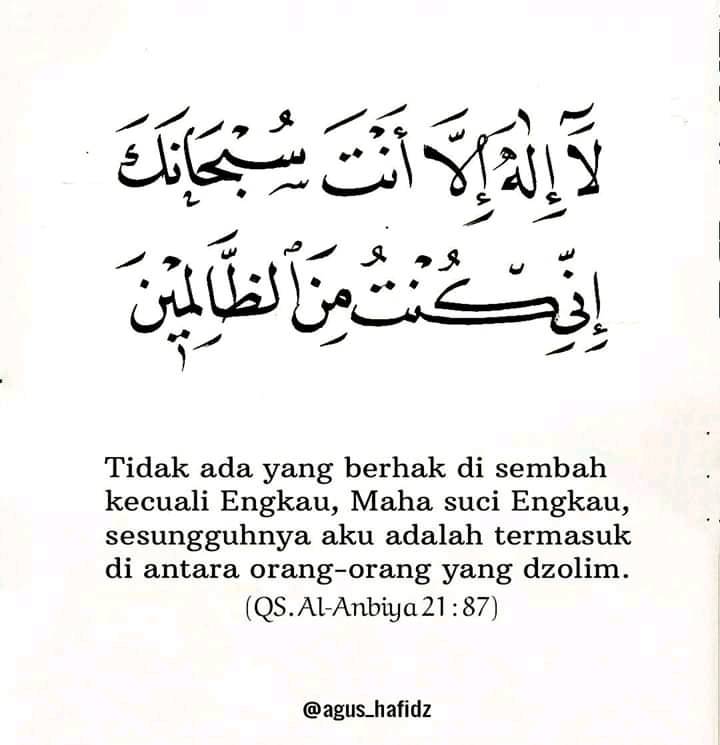 لَآ إِلٰهَ إِلَّا أَنْتَ سُبْحَانَكَ
إِنِّي كُنْتُ مِنَ ٱلظَّالِمِيْنَ
Tidak ada yang berhak di sembah
kecuali Engkau, Maha suci Engkau,
sesungguhnya aku adalah termasuk
di antara orang-orang yang dzolim.
(QS. Al-Anbiya 21 : 87)
@agus_hafidz